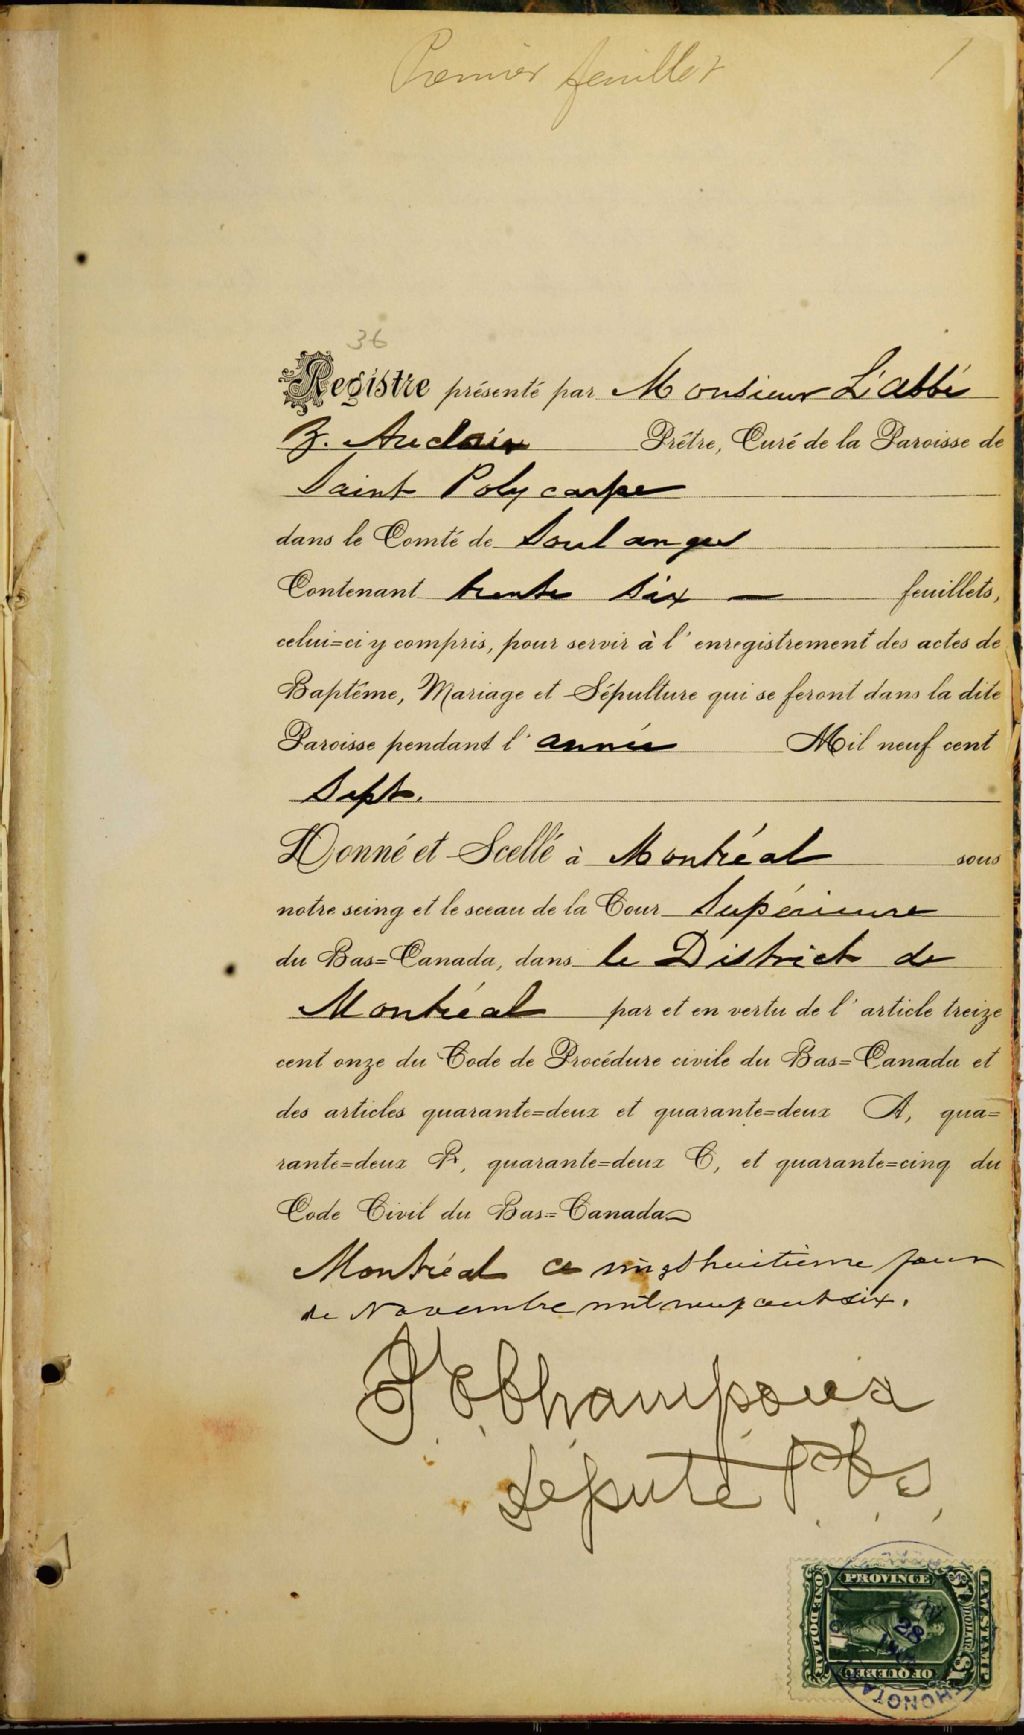 Premier feuillet 1
36
Registre présenté par Monsieur L'abbé
Z. Auclair Prêtre, Curé de la Paroisse de
Saint Polycarpe
dans le Comté de Soulanges
Contenant trente six — feuillets,
celui=ci y compris, pour servir à l'enregistrement des actes de
Baptême, Mariage et Sépulture qui se feront dans la dite
Paroisse pendant l'année Mil neuf cent
Sept.
Donné et Scellé à Montréal sous
notre seing et le sceau de la Cour Supérieure
du Bas=Canada, dans le District de
Montréal par et en vertu de l'article treize
cent onze du Code de Procédure civile du Bas=Canada et
des articles quarante=deux et quarante=deux A, qua=
rante=deux B, quarante=deux C, et quarante=cinq du
Code Civil du Bas=Canada
Montréal ce vingt huitième jour
de Novembre mil neuf cent six.
Champoux
Député P.C.S.
PROVINCE
OF QUEBEC
ONE DOLLAR
$1 DOLLAR $1
LAW STAMP
NOV
28